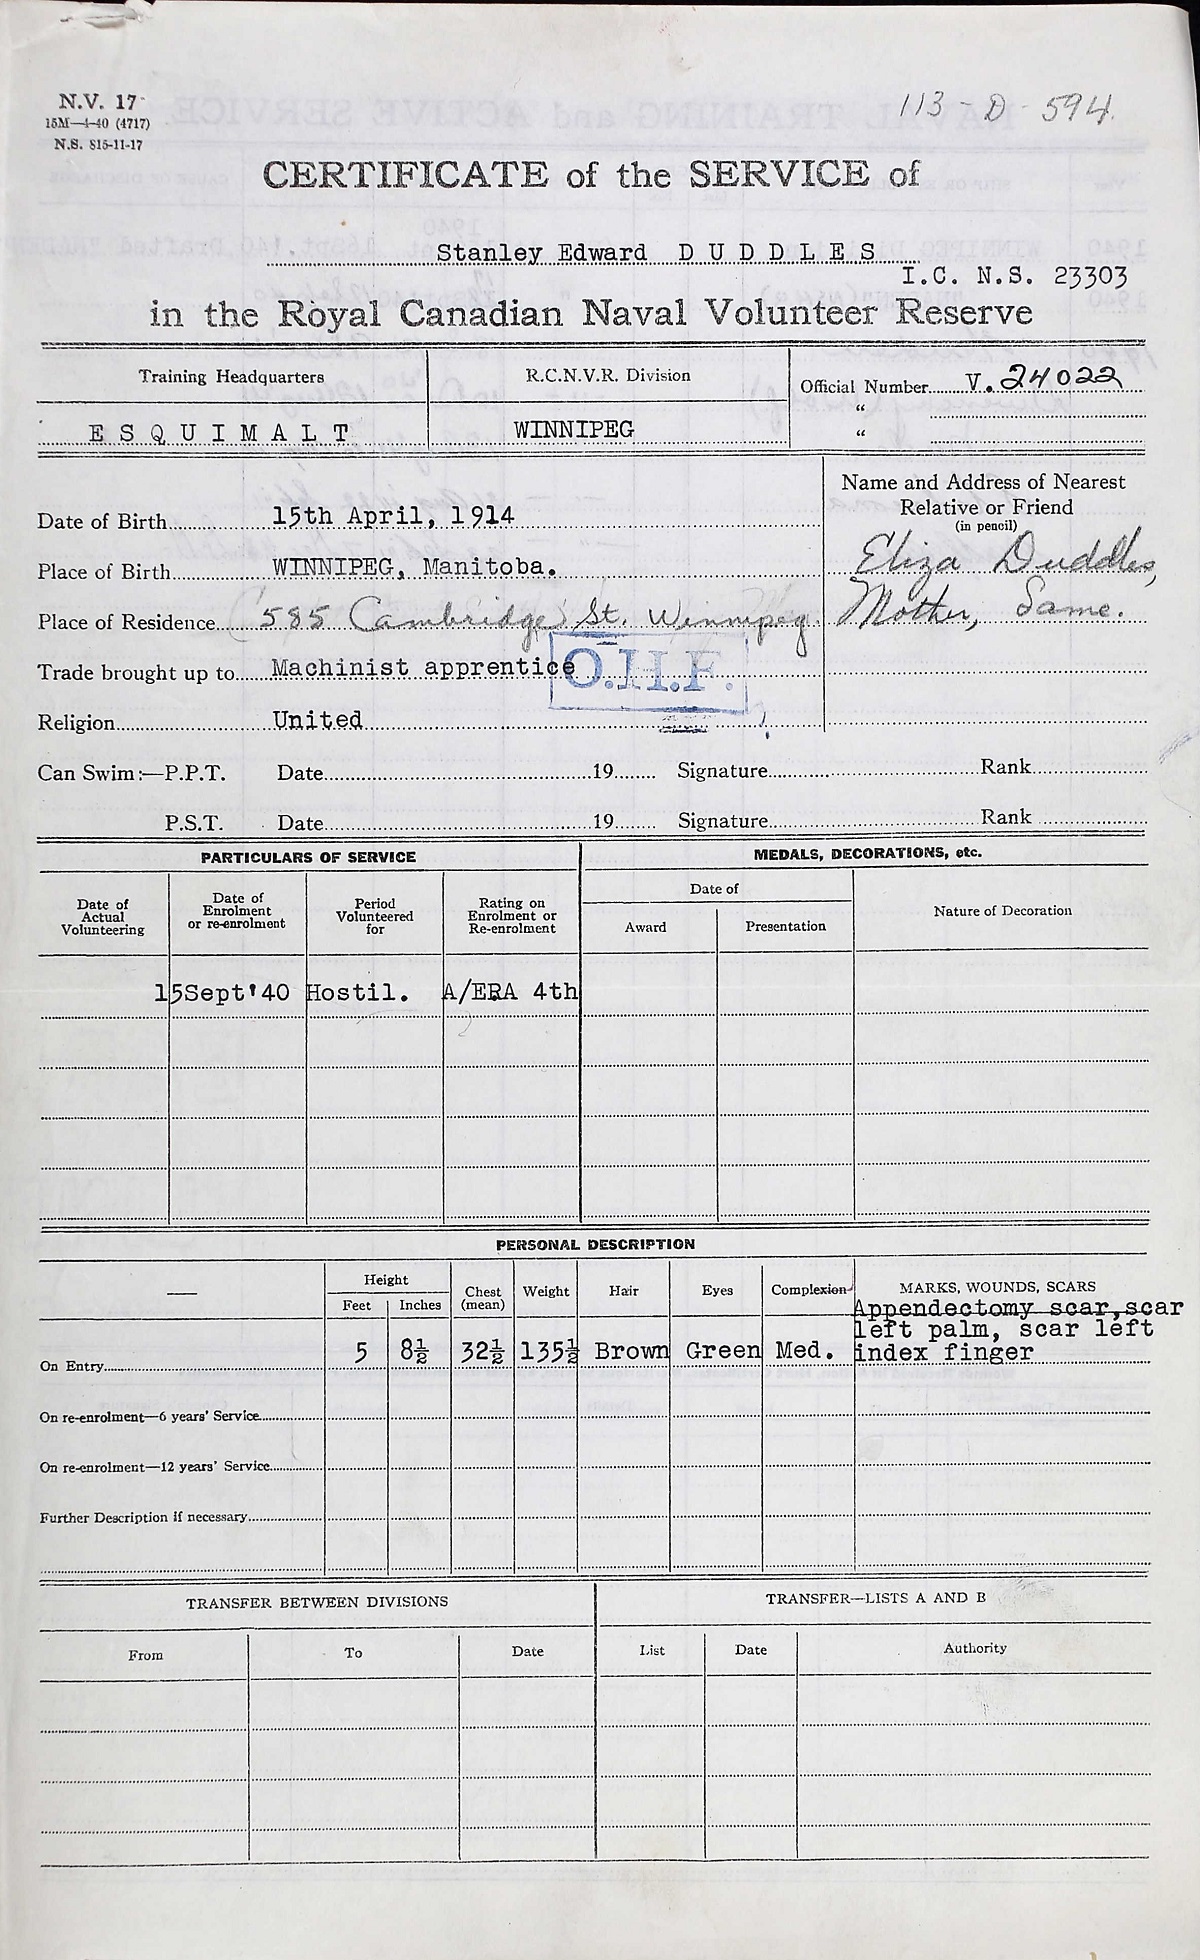 N.V. 17
15M—4-40 (4717)
N.S. 815-11-17
113 - D - 594.
CERTIFICATE of the SERVICE of
Stanley Edward D U D D L E S
I.C. N.S. 23303
in the Royal Canadian Naval Volunteer Reserve
Training Headquarters
E S Q U I M A L T
R.C.N.V.R. Division
WINNIPEG
Official Number V. 24022
“
“
Date of Birth 15th April, 1914
Place of Birth WINNIPEG, Manitoba.
Place of Residence 585 Cambridge St. Winnipeg.
Trade brought up to Machinist apprentice
O.H.F.
Religion United
Name and Address of Nearest
Relative or Friend
(in pencil)
Eliza Duddles,
Mother, Same.
Can Swim:—P.P.T. Date 19 Signature Rank
P.S.T. Date 19 Signature Rank
PARTICULARS OF SERVICE
MEDALS, DECORATIONS, etc.
Date of
Actual
Volunteering
Date of
Enrolment
or re-enrolment
Period
Volunteered
for
Rating on
Enrolment or
Re-enrolment
Date of
Award
Presentation
Nature of Decoration
15Sept'40 Hostil. A/ERA 4th
PERSONAL DESCRIPTION
Height
Feet
Inches
Chest
(mean)
Weight
Hair
Eyes
Complexion
MARKS, WOUNDS, SCARS
On Entry 5 8½ 32½ 135½ Brown Green Med.
Appendectomy scar,scar
left palm, scar left
index finger
On re-enrolment—6 years' Service
On re-enrolment—12 years' Service
Further Description if necessary
TRANSFER BETWEEN DIVISIONS
TRANSFER—LISTS A AND B
From
To
Date
List
Date
Authority